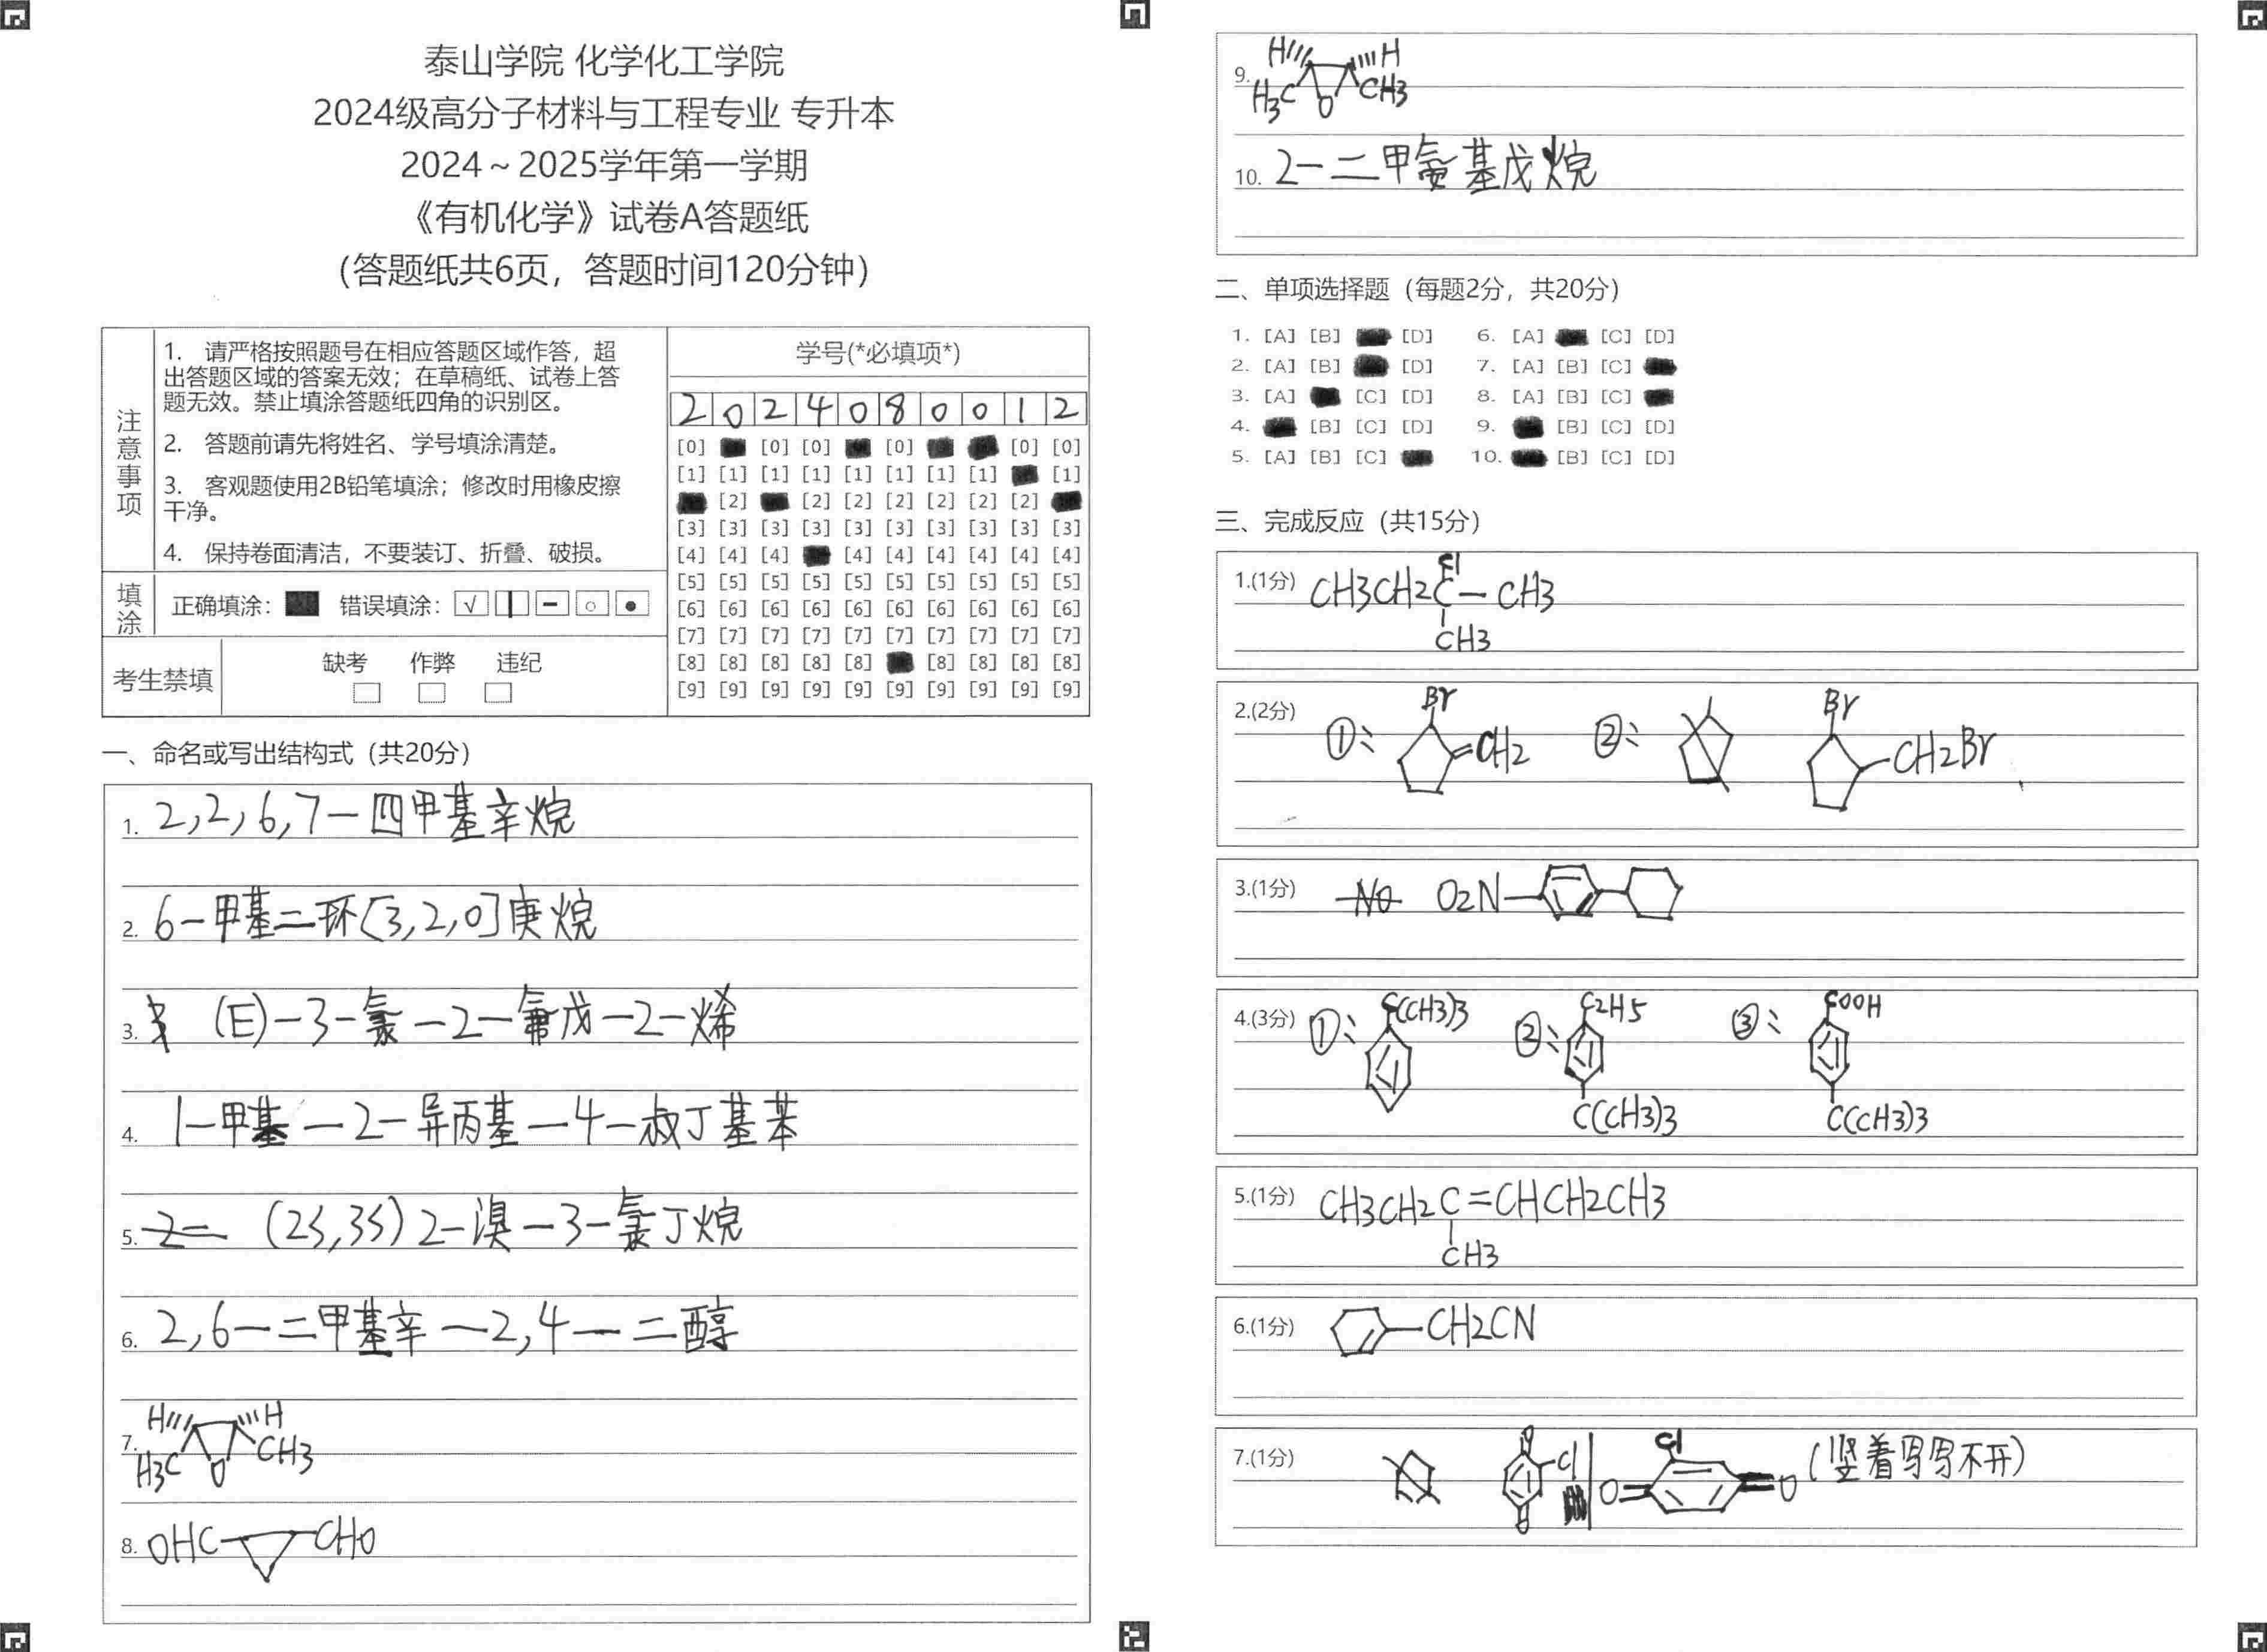 泰山学院 化学化工学院
2024级高分子材料与工程专业 专升本
2024～2025学年第一学期
《有机化学》试卷A答题纸
(答题纸共6页，答题时间120分钟)
注意事项
1. 请严格按照题号在相应答题区域作答，超
出答题区域的答案无效；在草稿纸、试卷上答
题无效。禁止填涂答题纸四角的识别区。
2. 答题前请先将姓名、学号填涂清楚。
3. 客观题使用2B铅笔填涂；修改时用橡皮擦
干净。
4. 保持卷面清洁，不要装订、折叠、破损。
填涂
正确填涂： 错误填涂： √
考生禁填
缺考 作弊 违纪
学号(*必填项*)
2 0 2 4 0 8 0 0 1 2
[0] [0] [0] [0] [0] [0]
[1] [1] [1] [1] [1] [1] [1] [1] [1]
[2] [2] [2] [2] [2] [2] [2]
[3] [3] [3] [3] [3] [3] [3] [3] [3] [3]
[4] [4] [4] [4] [4] [4] [4] [4] [4]
[5] [5] [5] [5] [5] [5] [5] [5] [5] [5]
[6] [6] [6] [6] [6] [6] [6] [6] [6] [6]
[7] [7] [7] [7] [7] [7] [7] [7] [7] [7]
[8] [8] [8] [8] [8] [8] [8] [8] [8]
[9] [9] [9] [9] [9] [9] [9] [9] [9] [9]
一、命名或写出结构式（共20分）
1. 2,2,6,7-四甲基辛烷
2. 6-甲基二环[3,2,0]庚烷
3. (E)-3-氯-2-氟戊-2-烯
4. 1-甲基-2-异丙基-4-叔丁基苯
5. (2S,3S)2-溴-3-氯丁烷
6. 2,6-二甲基辛-2,4-二醇
7. H H
H3C O CH3
8. OHC CHO
9. H H
H3C O CH3
10. 2-二甲氨基戊烷
二、单项选择题（每题2分，共20分）
1. [A] [B] [D] 6. [A] [C] [D]
2. [A] [B] [D] 7. [A] [B] [C]
3. [A] [C] [D] 8. [A] [B] [C]
4. [B] [C] [D] 9. [B] [C] [D]
5. [A] [B] [C] 10. [B] [C] [D]
三、完成反应（共15分）
Cl
1.(1分) CH3CH2C-CH3
CH3
2.(2分) ①: Br =CH2 ②: Br CH2Br
3.(1分) O2N
4.(3分) ①: C(CH3)3 ②: C2H5 ③: COOH
C(CH3)3 C(CH3)3
5.(1分) CH3CH2C=CHCH2CH3
CH3
6.(1分) CH2CN
7.(1分) O Cl O Cl O=  =O (竖着写写不开)